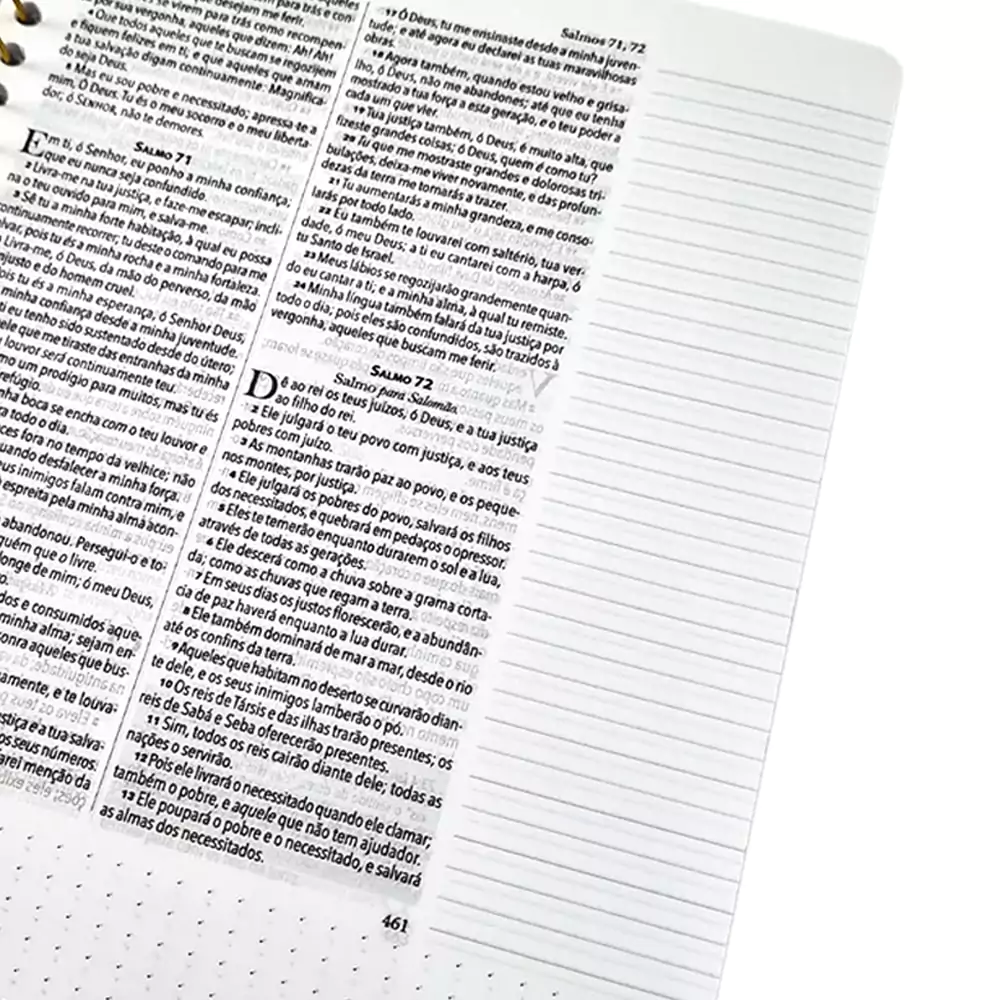 Salmos 71, 72
se virem para trás e con-
desejam me ferir.
4 Que todos aqueles que te buscam se regozijem
e fiquem felizes em ti; e que aqueles que amam
a tua salvação digam continuamente: Magnifica-
do seja Deus.
5 Mas eu sou pobre e necessitado; apressa-te a
mim, Ó Deus. Tu és o meu socorro e o meu liberta-
dor; ó SENHOR, não te demores.
SALMO 71
Em ti, ó Senhor, eu ponho a minha confiança;
que eu nunca seja confundido.
2 Livra-me na tua justiça, e faze-me escapar; incli-
na o teu ouvido para mim, e salva-me.
3 Sê tu a minha forte habitação, à qual eu possa
continuamente recorrer; tu deste o comando para me
lvar, pois tu és a minha rocha e a minha fortaleza.
Livra-me, ó Deus, da mão do perverso, da mão
njusto e do homem cruel.
ois tu és a minha esperança, ó Senhor Deus;
minha confiança desde a minha juventude.
ti eu tenho sido sustentado desde do útero;
ele que me tiraste das entranhas da minha
louvor será continuamente teu.
mo um prodígio para muitos, mas tu és
refúgio.
nha boca se encha com o teu louvor e
a todo o dia.
ces fora no tempo da velhice; não
uando desfalecer a minha força;
us inimigos falam contra mim, e
espreita pela minha alma acon-
abandonou. Persegui-o e to-
quém que o livre.
longe de mim; ó meu Deus,
dos e consumidos aque-
minha alma; sejam en-
onra aqueles que bus-
amente, e te louva-
stiça e a tua salva-
os seus números.
arei menção da
17 Ó Deus, tu me ensinaste desde a minha juven-
tude; e até agora eu declarei as tuas maravilhosas
obras.
18 Agora também, quando estou velho e grisa-
lho, ó Deus, não me abandones; até que eu tenha
mostrado a tua força a esta geração, e o teu poder a
cada um que vier.
19 Tua justiça também, ó Deus, é muito alta, que
fizeste grandes coisas; ó Deus, quem é como tu?
20 Tu que me mostraste grandes e dolorosas tri-
bulações, deixa-me viver novamente, e das profun-
dezas da terra me tornarás a trazer.
21 Tu aumentarás a minha grandeza, e me conso-
larás por todo lado.
22 Eu também te louvarei com saltério, tua ver-
dade, ó meu Deus; a ti eu cantarei com a harpa, ó
tu Santo de Israel.
23 Meus lábios se regozijarão grandemente quan-
do eu cantar a ti; e a minha alma, à qual tu remiste.
24 Minha língua também falará da tua justiça por
todo o dia; pois eles são confundidos, são trazidos à
vergonha, aqueles que buscam me ferir.
SALMO 72
Salmo para Salomão.
Dê ao rei os teus juízos, ó Deus, e a tua justiça
ao filho do rei.
2 Ele julgará o teu povo com justiça, e aos teus
pobres com juízo.
3 As montanhas trarão paz ao povo, e os peque-
nos montes, por justiça.
4 Ele julgará os pobres do povo, salvará os filhos
dos necessitados, e quebrará em pedaços o opressor.
5 Eles te temerão enquanto durarem o sol e a lua,
através de todas as gerações.
6 Ele descerá como a chuva sobre a grama corta-
da; como as chuvas que regam a terra.
7 Em seus dias os justos florescerão, e a abundân-
cia de paz haverá enquanto a lua durar.
8 Ele também dominará de mar a mar, desde o rio
até os confins da terra.
9 Aqueles que habitam no deserto se curvarão dian-
te dele, e os seus inimigos lamberão o pó.
10 Os reis de Társis e das ilhas trarão presentes; os
reis de Sabá e Seba oferecerão presentes.
11 Sim, todos os reis cairão diante dele; todas as
nações o servirão.
12 Pois ele livrará o necessitado quando ele clamar;
também o pobre, e aquele que não tem ajudador.
13 Ele poupará o pobre e o necessitado, e salvará
as almas dos necessitados.
461